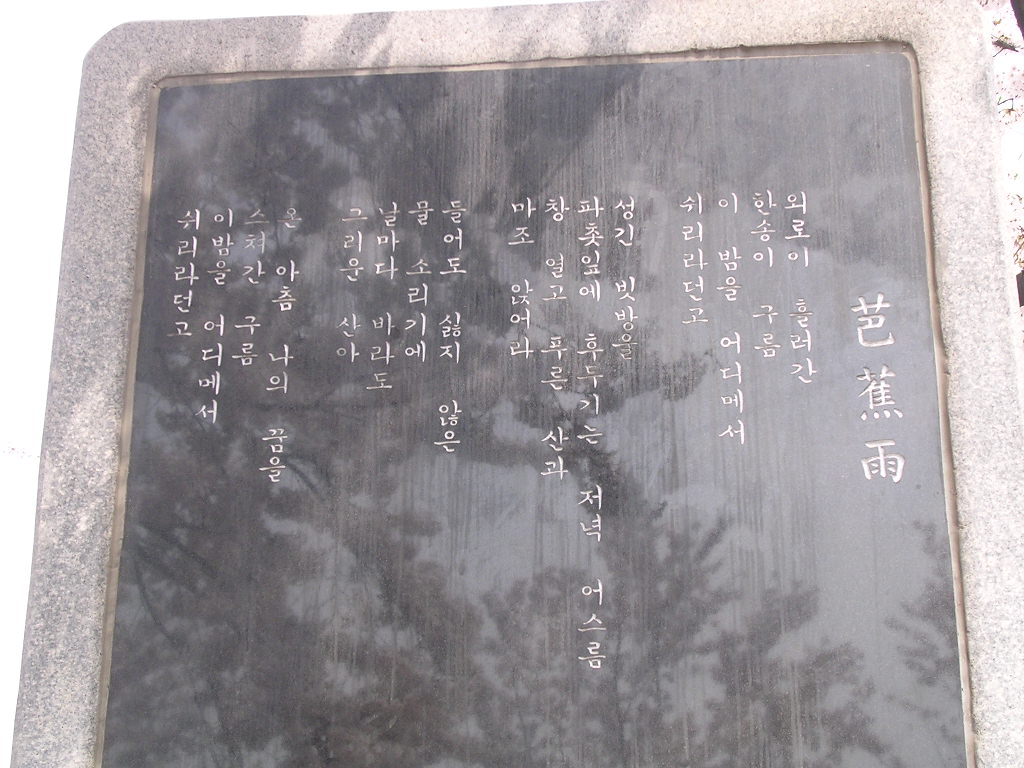 芭蕉雨
외로이 흘러간
한송이 구름
이 밤을 어디메서
쉬리라던고
성긴 빗방울
파촛잎에 후두기는 저녁 어스름
창 열고 푸른 산과
마조 앉어라
들어도 싫지 않은
물 소리기에
날마다 바라도
그리운 산아
온 아츰 나의 꿈을
스쳐간 구름
이밤을 어디메서
쉬리라던고